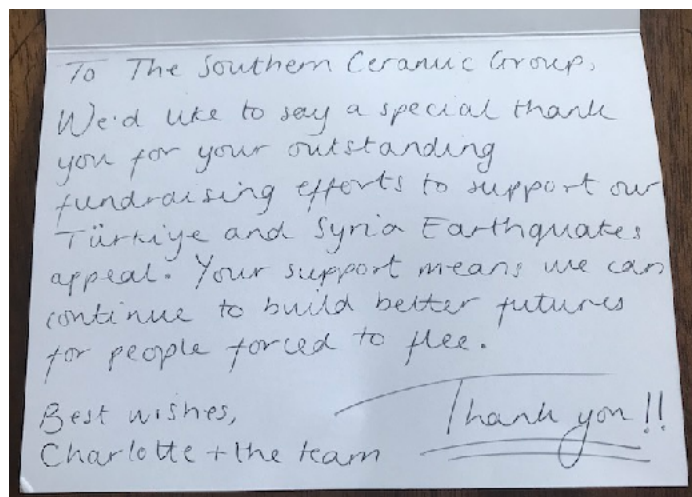 To The Southern Ceramic Group,
We'd like to say a special thank
you for your outstanding
fundraising efforts to support our
Türkiye and Syria Earthquakes
appeal. Your support means we can
continue to build better futures
for people forced to flee.
Best wishes,
Charlotte + the team
Thank you!!